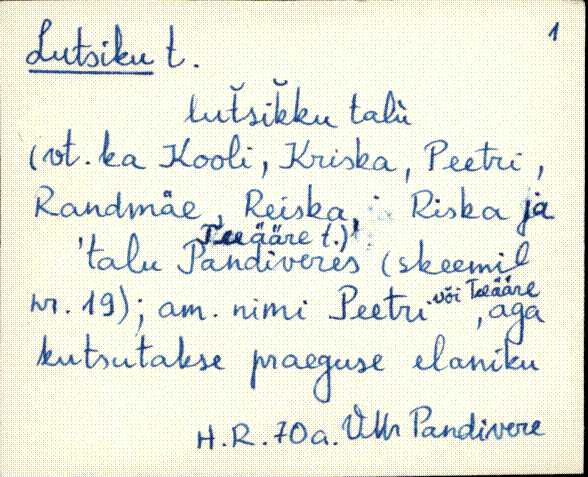 1
Lutsiku t.
lut̆sik̆ku talù
(vt. ka Kooli, Kriska, Peetri,
Randmäe, Reiska, Riska ja
Teeääre t.)
'talu Pandiveres (skeemil
nr. 19); am. nimi Peetri või Teeääre, aga
kutsutakse praeguse elaniku
H.R. 70a. VMr Pandivere